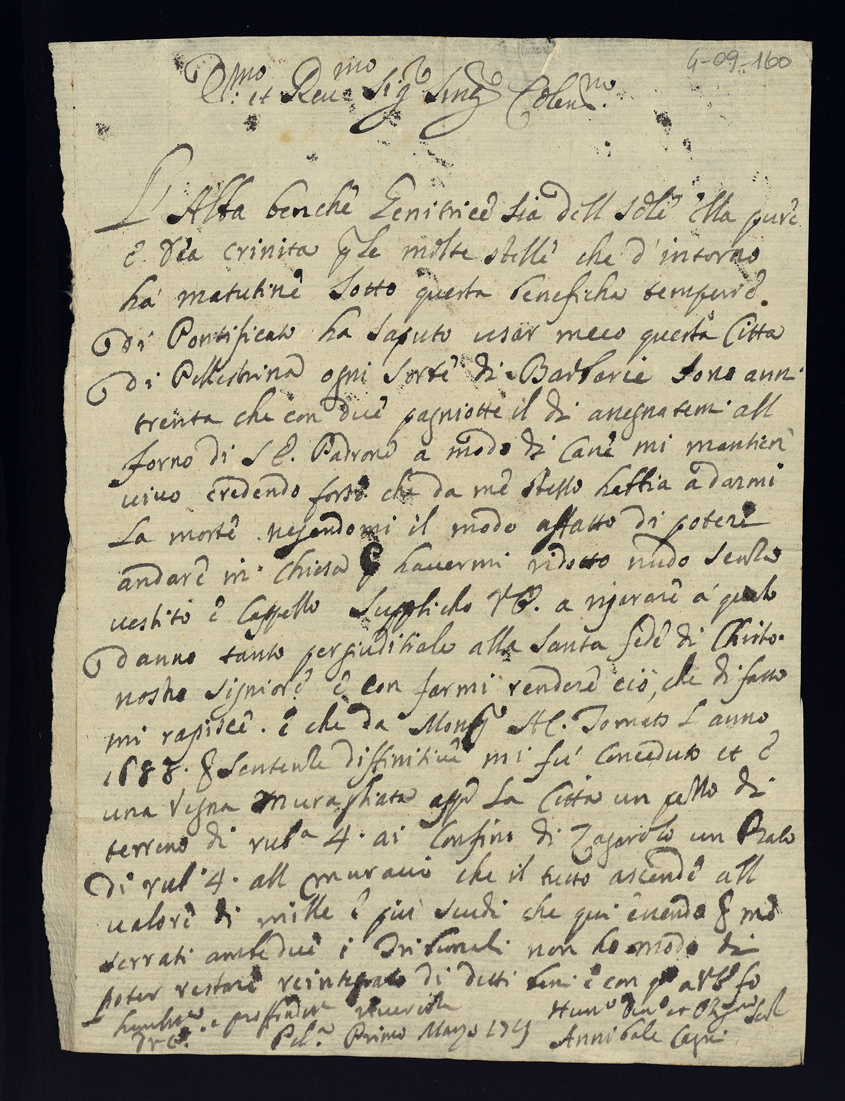 4-09-160
et Sig.
L'Alba benche Genitrice sia dell sole ella pure
è Dea crinita le molte stelle che d'intorno
ha matutine sotto questa benefica
di Pontificato ha saputo usar meco questa Citta
di Pellestrina ogni sorte di Barbarie sono anni
trenta che con due pagniotte il di all
forno di S. E. Padrone a modo di Cane mi mantien
vivo credendo forse che da me stesso habbia a darmi
La morte negandomi il modo affatto di potere
andare in Chiesa havermi ridotto nudo senza
vestito e Cappello Supplicho VE. a riparare a questo
danno tanto pergiuditiale alla Santa fede di Christo
nostro Signiore e con farmi rendere ciò, che di fatto
mi rapisce. e che da Monsr Al. Tornato L anno
1688. Sentenza diffinitiva mi fu Conceduto et è
una Vigna Muragliata La Citta un pezzo di
terreno di rub.a 4. ai Confini di Zagarolo un Prato
di rub. 4. all che il tutto ascende all
valore di mille e piu scudi che qui
serrati ambedue i Tribunali non ho modo di
poter restare reintegrato di detti beni e con fo
humliss.a e proffunda riverenza Hum.o Dev.o et Obg.mo
D. VE. Pel.a Primo Marzo Annibale